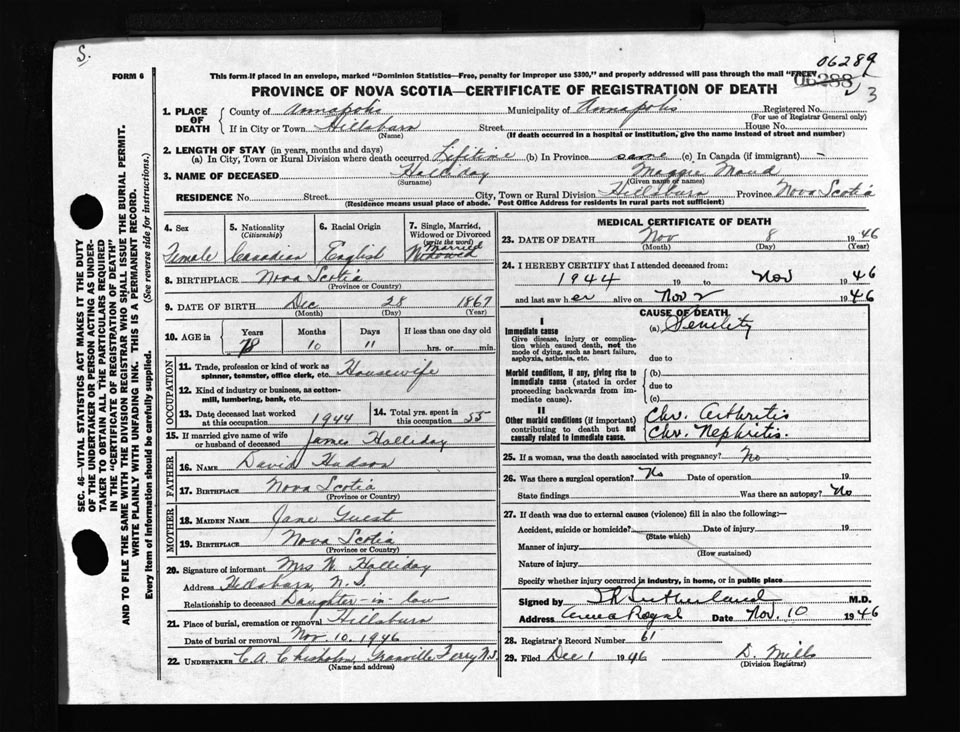 S.
06289
FORM 6
This form if placed in an envelope, marked "Dominion Statistics—Free, penalty for improper use $300," and properly addressed will pass through the mail "FREE"
06288
3
PROVINCE OF NOVA SCOTIA—CERTIFICATE OF REGISTRATION OF DEATH
1. PLACE OF DEATH
County of Annapolis Municipality of Annapolis Registered No.
(For use of Registrar General only)
If in City or Town Hillsburn Street House No.
(Name) (If death occurred in a hospital or institution, give the name instead of street and number)
2. LENGTH OF STAY (in years, months and days)
(a) In City, Town or Rural Division where death occurred Lifetime (b) In Province same (c) In Canada (if immigrant) -
3. NAME OF DECEASED Halliday Maggie Maud
(Surname) (Given name or names)
RESIDENCE No. Street City, Town or Rural Division Hillsburn Province Nova Scotia
(Residence means usual place of abode. Post Office Address for residents in rural parts not sufficient)
4. Sex
Female
5. Nationality
(Citizenship)
Canadian
6. Racial Origin
English
7. Single, Married, Widowed or Divorced
(write the word)
Married
Widowed
8. BIRTHPLACE Nova Scotia
(Province or Country)
9. DATE OF BIRTH Dec 28 1867
(Month) (Day) (Year)
10. AGE in Years Months Days If less than one day old
78 10 11 hrs. or min.
OCCUPATION
11. Trade, profession or kind of work as spinner, teamster, office clerk, etc. Housewife
12. Kind of industry or business, as cotton-mill, lumbering, bank, etc.
13. Date deceased last worked at this occupation 1944
14. Total yrs. spent in this occupation 55
15. If married give name of wife or husband of deceased James Halliday
FATHER
16. NAME David Hudson
17. BIRTHPLACE Nova Scotia
(Province or Country)
MOTHER
18. MAIDEN NAME Jane Guest
19. BIRTHPLACE Nova Scotia
(Province or Country)
20. Signature of informant Mrs W. Halliday
Address Hillsburn, N.S.
Relationship to deceased Daughter-in-law
21. Place of burial, cremation or removal Hillsburn
Date of burial or removal Nov. 10. 1946
22. UNDERTAKER C.A. Chisholm, Granville Ferry N.S.
(Name and address)
MEDICAL CERTIFICATE OF DEATH
23. DATE OF DEATH Nov 8 1946
(Month) (Day) (Year)
24. I HEREBY CERTIFY that I attended deceased from:
1944 19 to Nov 1946
and last saw her alive on Nov 2 1946
CAUSE OF DEATH
I
Immediate cause
Give disease, injury or complication which caused death, not the mode of dying, such as heart failure, asphyxia, asthenia, etc.
(a) Senility
due to
Morbid conditions, if any, giving rise to immediate cause (stated in order proceeding backwards from immediate cause).
(b)
due to
(c)
II
Other morbid conditions (if important) contributing to death but not causally related to immediate cause.
Chr. Arthritis
Chr. Nephritis.
25. If a woman, was the death associated with pregnancy? No
26. Was there a surgical operation? No Date of operation 19
State findings Was there an autopsy? No
27. If death was due to external causes (violence) fill in also the following:—
Accident, suicide or homicide? Date of injury 19
(State which)
Manner of injury
(How sustained)
Nature of injury
Specify whether injury occurred in industry, in home, or in public place
Signed by Sutherland M.D.
Address Anna Royal Date Nov. 10 1946
28. Registrar's Record Number 61
29. Filed Dec 1 1946 D. Mills
(Division Registrar)
SEC. 46—VITAL STATISTICS ACT MAKES IT THE DUTY
OF THE UNDERTAKER OR PERSON ACTING AS UNDER-
TAKER TO OBTAIN ALL THE PARTICULARS REQUIRED
IN THE "CERTIFICATE OF REGISTRATION OF DEATH"
AND TO FILE THE SAME WITH THE DIVISION REGISTRAR WHO SHALL ISSUE THE BURIAL PERMIT.
WRITE PLAINLY WITH UNFADING INK. THIS IS A PERMANENT RECORD.
Every item of information should be carefully supplied. (See reverse side for instructions.)